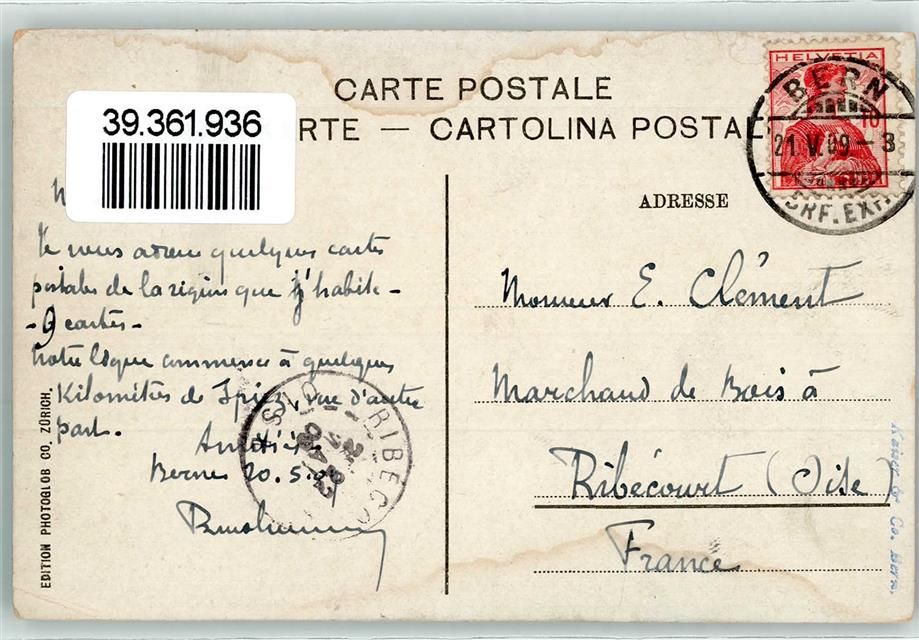 CARTE POSTALE
39.361.936
RTE — CARTOLINA POSTALE
HELVETIA
10
BERN
21.V.09 - 3
BRF. EXP.
ADRESSE
Je vous adresse quelques cartes
postales de la région que j'habite -
- 9 cartes -
Notre ligne commence à quelques
Kilomètres de Spiez, vue d'autre
part.
Amitiés
Berne 20.5.09
Monsieur E. Clément
Marchand de Bois à
Ribécourt (Oise)
France
RIBÉCO
EDITION PHOTOGLOB CO. ZÜRICH.
Kaiser & Co. Bern.